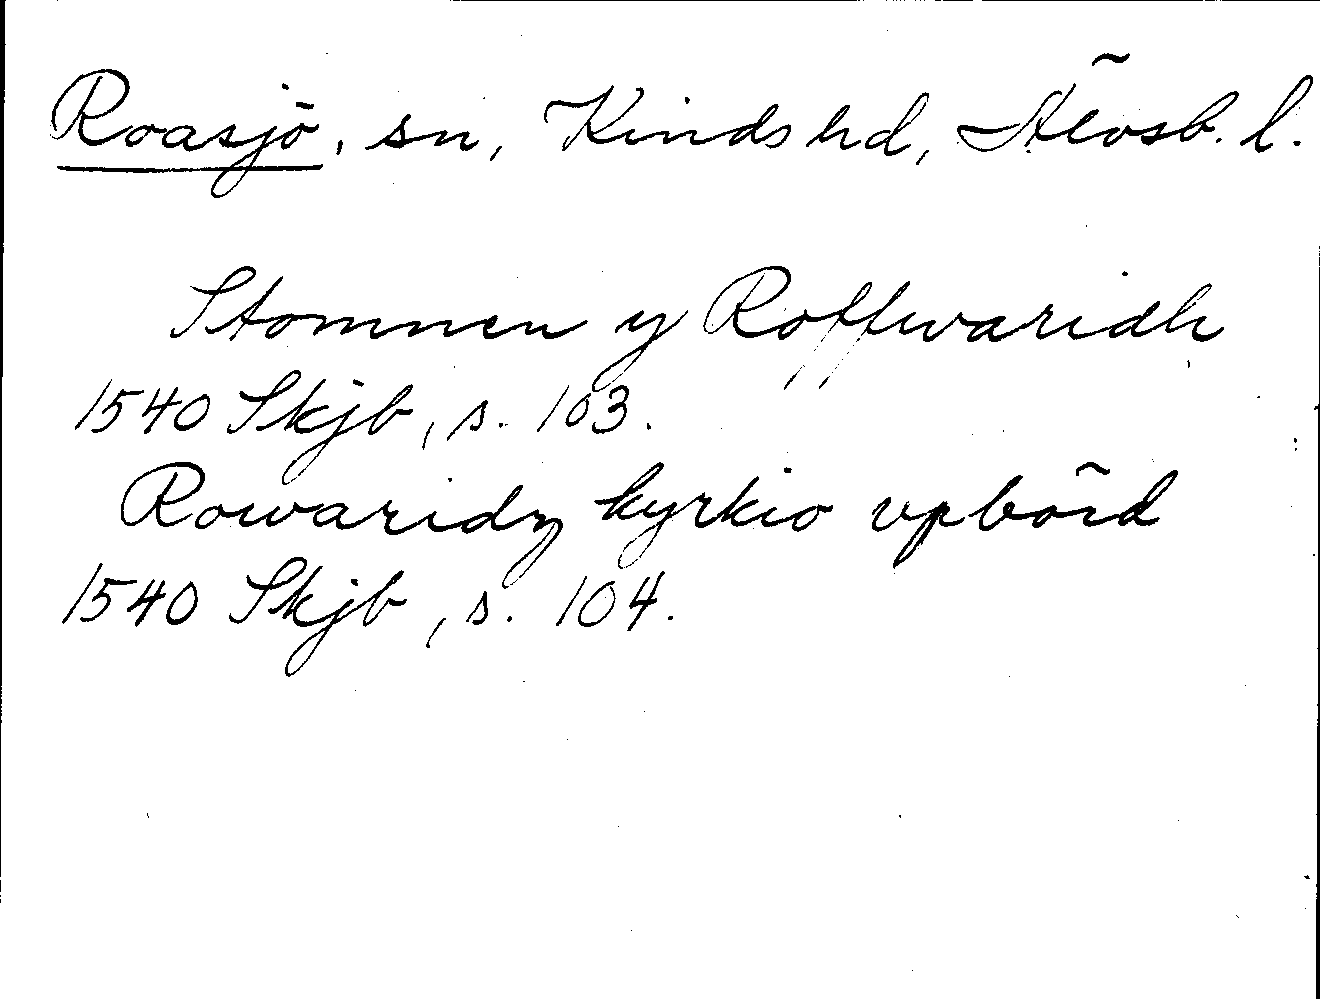 Roasjö, sn, Kinds hd, Älvsb. l.
Stommen y Roffwaridh
1540 Skjb, s. 103.
Rowaridz kyrkio vpbörd
1540 Skjb, s. 104.